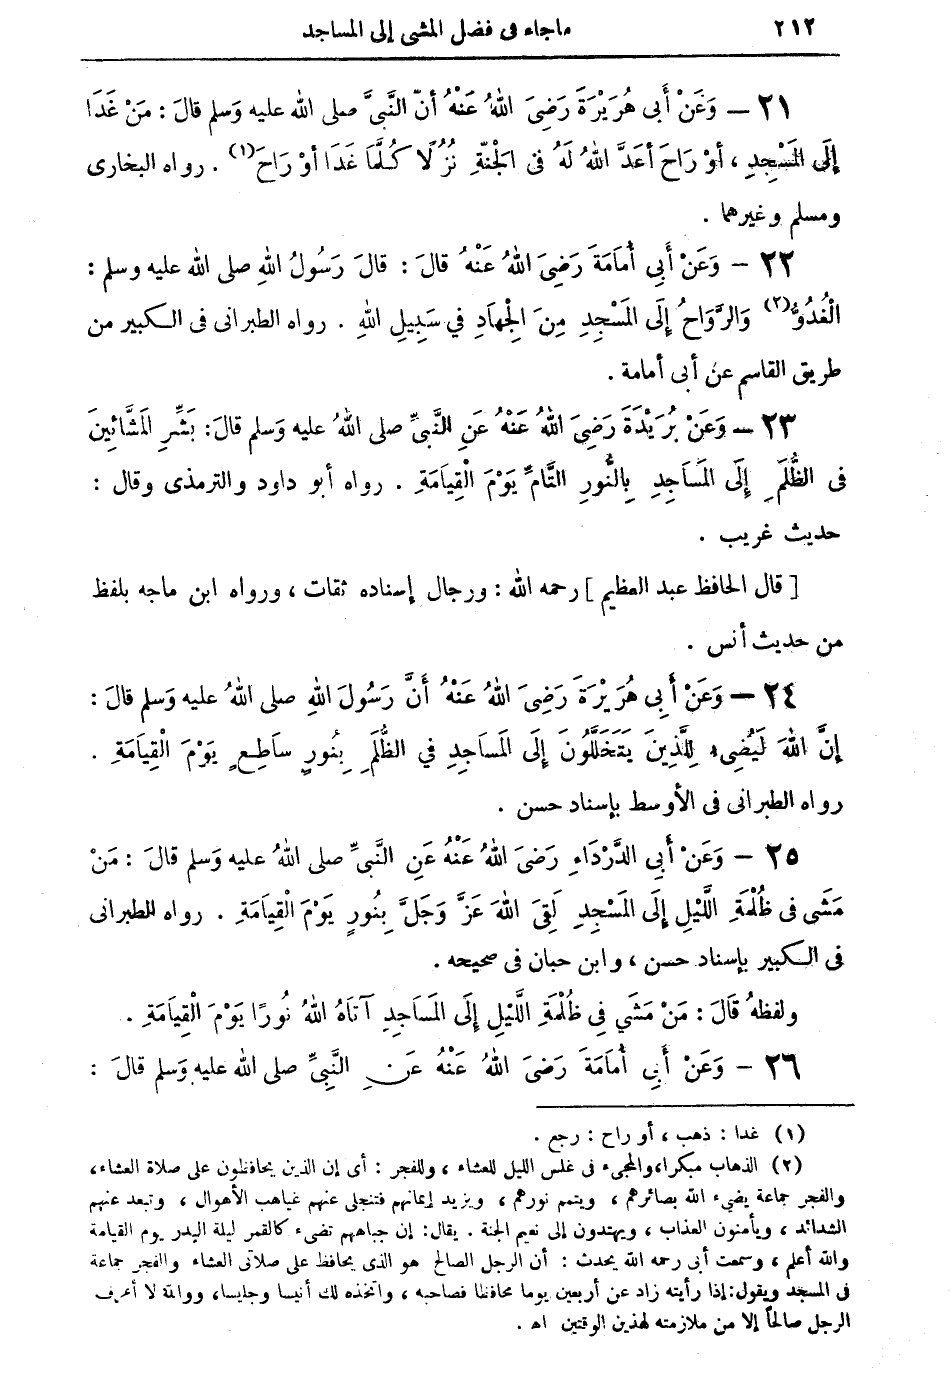 ٢١٢ ماجاء فى فضل المشى إلى المساجد
٢١ – وَعَنْ أَبِى هُرَيْرَةَ رَضِىَ اللهُ عَنْهُ أنّ النَّبِىَّ صلى الله عليه وَسلم قالَ : مَنْ غَدَا
إِلَى الْمَسْجِدِ ، أوْ رَاحَ أعَدَّ اللهُ لَهُ فى الجنّةِ نُزُلًا كُلَّمَا غَدَا أوْ رَاحَ(١) . رواه البخارى
ومسلم وغيرهما .
٢٢ – وَعَنْ أَبِى أُمَامَةَ رَضِىَ اللهُ عَنْهُ قالَ : قالَ رَسُولُ اللهِ صلى الله عليه وسلم :
الْغُدُوُّ(٢) وَالرَّوَاحُ إلَى الْمَسْجِدِ مِنَ الْجِهَادِ فِي سَبِيلِ اللهِ . رواه الطبرانى فى الكبير من
طريق القاسم عن أبى أمامة .
٢٣ – وَعَنْ بُرَيْدَةَ رَضِىَ اللهُ عَنْهُ عَنِ النَّبِىِّ صلى اللهُ عليه وَسلم قالَ : بَشِّرِ الْمَشَّائِينَ
فى الظُّلَمِ إِلَى الْمَسَاجِدِ بِالنُّورِ التَّامِّ يَوْمَ الْقِيَامَةِ . رواه أبو داود والترمذى وقال :
حديث غريب .
[ قال الحافظ عبد العظيم ] رحمه الله : ورجال إسناده ثقات ، ورواه ابن ماجه بلفظ
من حديث أنس .
٢٤ – وَعَنْ أَبِى هُرَيْرَةَ رَضِىَ اللهُ عَنْهُ أَنَّ رَسُولَ اللهِ صلى اللهُ عليه وَسلم قالَ :
إنَّ اللهَ لَيُضِىءُ لِلَّذِينَ يَتَخَلَّلُونَ إِلَى الْمَسَاجِدِ فِي الظُّلَمِ بِنُورٍ سَاطِعٍ يَوْمَ الْقِيَامَةِ .
رواه الطبرانى فى الأوسط بإسناد حسن .
٢٥ – وَعَنْ أَبِى الدَّرْدَاءِ رَضِىَ اللهُ عَنْهُ عَنِ النَّبِىِّ صلى اللهُ عليه وَسلم قالَ : مَنْ
مَشَى فى ظُلْمَةِ اللَّيْلِ إِلَى الْمَسْجِدِ لَقِىَ اللهَ عَزَّ وَجَلَّ بِنُورٍ يَوْمَ الْقِيَامَةِ . رواه الطبرانى
فى الكبير بإسناد حسن ، وابن حبان فى صحيحه .
ولفظهُ قَالَ : مَنْ مَشَي فِى ظُلْمَةِ اللَّيْلِ إِلَى الْمَسَاجِدِ آتَاهُ اللهُ نُورًا يَوْمَ الْقِيَامَةِ .
٢٦ – وَعَنْ أَبِى أُمَامَةَ رَضِىَ اللهُ عَنْهُ عَنِ النَّبِىِّ صلى الله عليه وَسلم قالَ :
(١) غدا : ذهب ، أو راح : رجع .
(٢) الذهاب مبكرا، والمجىء فى غلس الليل للعشاء ، وللفجر : أى إن الذين يحافظون على صلاة العشاء،
والفجر جماعة يضىء الله بصائرهم ، ويتمم نورهم ، ويزيد إيمانهم فتنجلى عنهم غياهب الأهوال ، وتبعد عنهم
الشدائد ، ويأمنون العذاب ، ويهتدون إلى نعيم الجنة . يقال: إن جباههم تضىء كالقمر ليلة البدر يوم القيامة
والله أعلم ، وسمعت أبى رحمه الله يحدث : أن الرجل الصالح هو الذى يحافظ على صلاتى العشاء والفجر جماعة
فى المسجد ويقول: إذا رأيته زاد عن أربعين يوما محافظا فصاحبه ، واتخذه لك أنيسا وجليسا، ووالله لا أعرف
الرجل صالحاً إلا من ملازمته لهذين الوقتين اهـ .